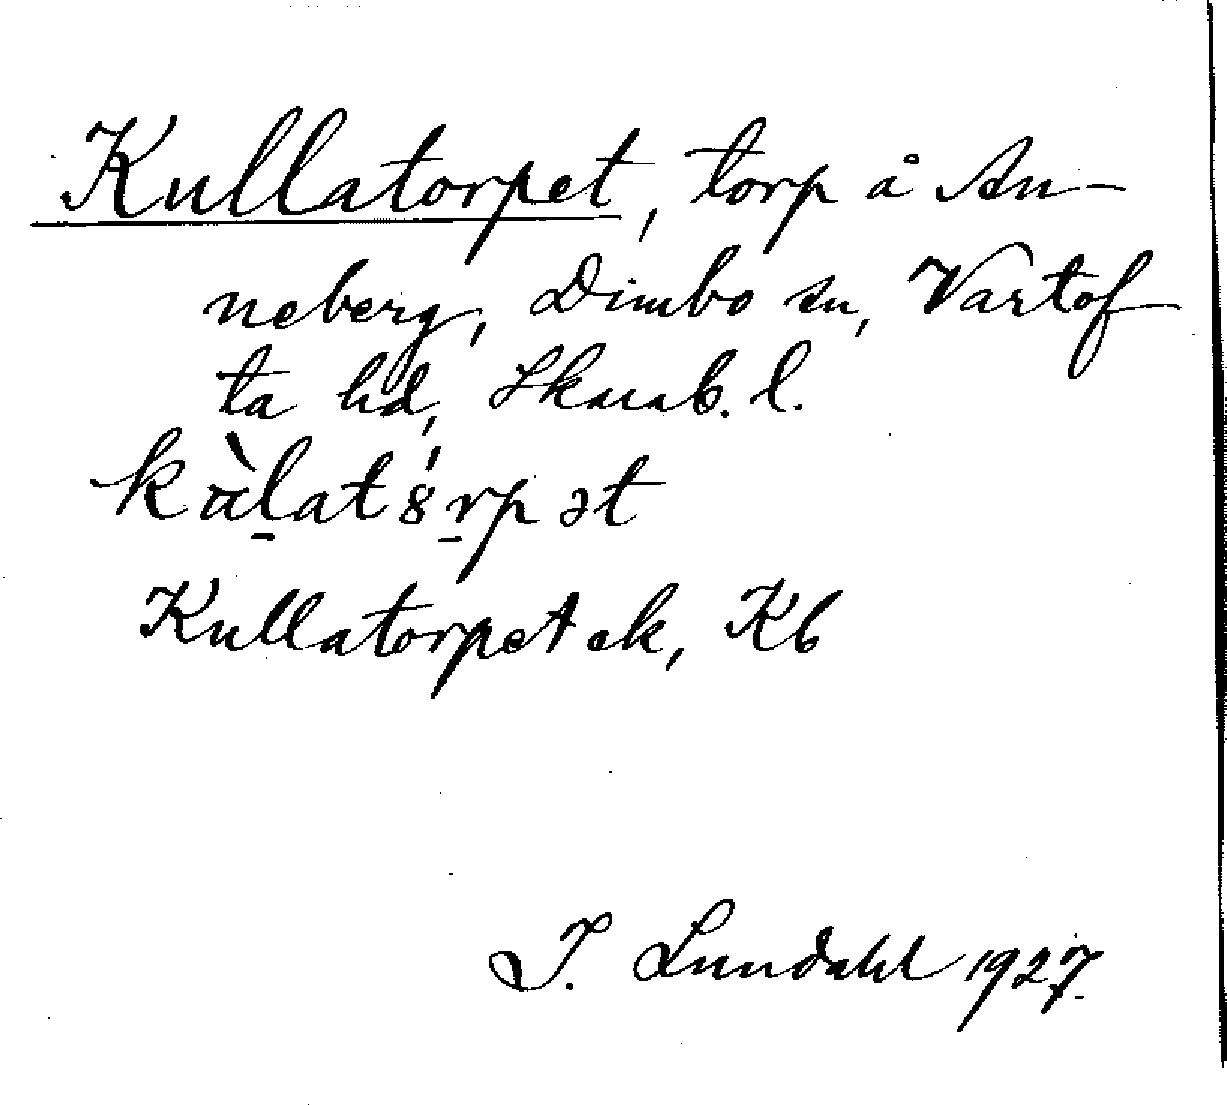 Kullatorpet, torp å An-
neberg, Dimbo sn, Vartof
ta hd, Skarab. l.
kùlatȣrpət
Kullatorpet ek, Kb
I. Lundahl 1927.